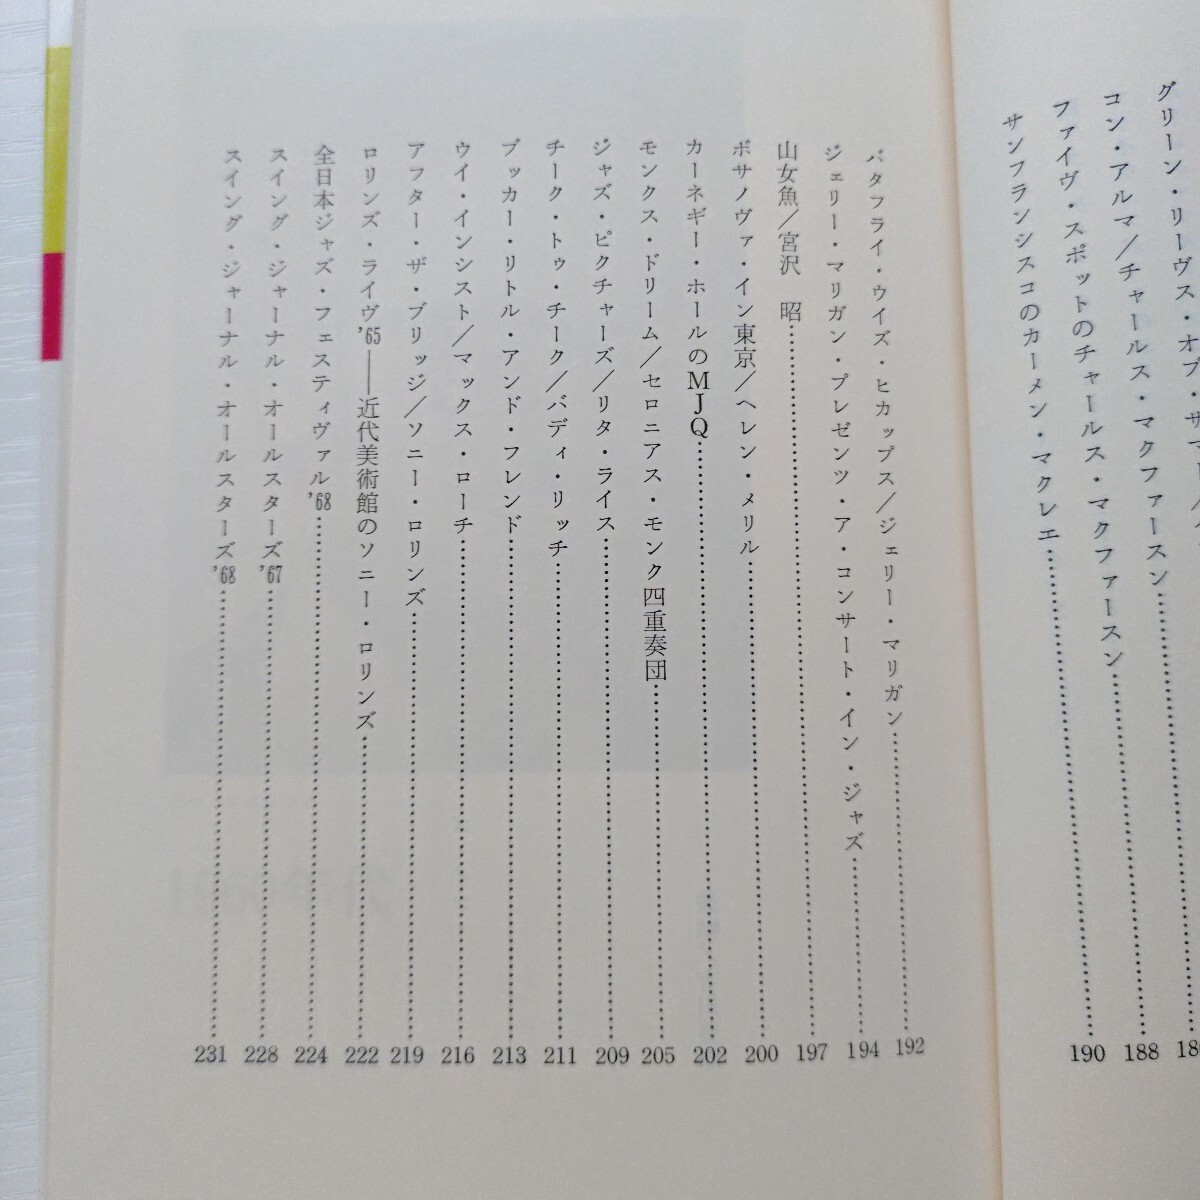 グリーン・リーヴス・オブ・サマー／
コン・アルマ／チャールス・マクファースン……188
ファイヴ・スポットのチャールス・マクファースン……190
サンフランシスコのカーメン・マクレエ……
バタフライ・ウイズ・ヒカップス／ジェリー・マリガン……192
ジェリー・マリガン・プレゼンツ・ア・コンサート・イン・ジャズ……194
山女魚／宮沢　昭……197
ボサノヴァ・イン東京／ヘレン・メリル……200
カーネギー・ホールのMJQ……202
モンクス・ドリーム／セロニアス・モンク四重奏団……205
ジャズ・ピクチャーズ／リタ・ライス……209
チーク・トゥ・チーク／バディ・リッチ……211
ブッカー・リトル・アンド・フレンド……213
ウイ・インシスト／マックス・ローチ……216
アフター・ザ・ブリッジ／ソニー・ロリンズ……219
ロリンズ・ライヴ'65——近代美術館のソニー・ロリンズ……222
全日本ジャズ・フェスティヴァル'68……224
スイング・ジャーナル・オールスターズ'67……228
スイング・ジャーナル・オールスターズ'68……231